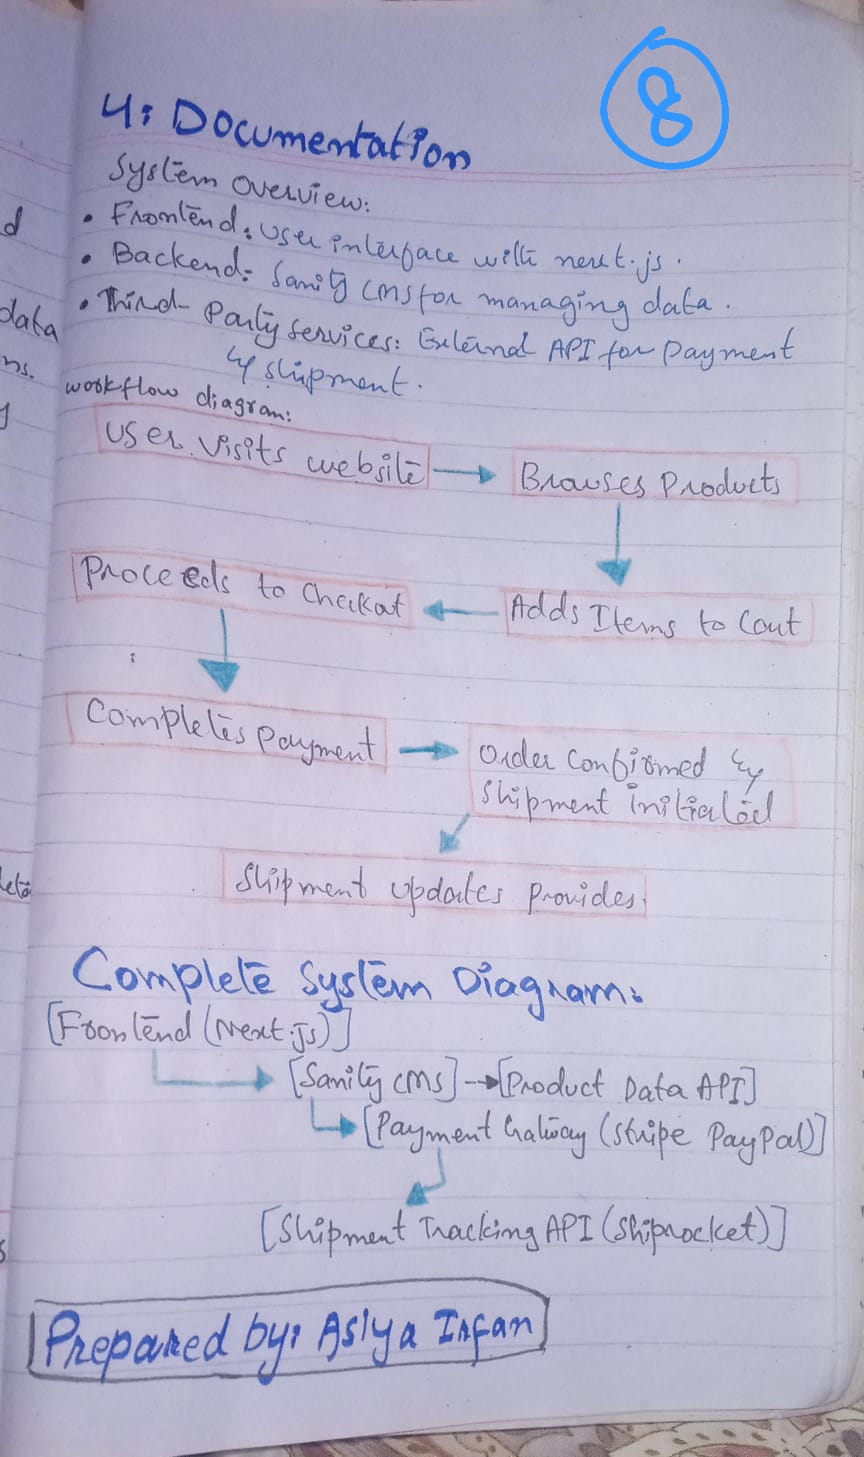 8
4: Documentation
System overview:
• Frontend: User interface with next.js.
• Backend: Sanity CMS for managing data.
• Third-Party Services: External API for Payment
& shipment.
workflow diagram:
User Visits website → Browses Products
Proceeds to Chekout ← Adds Items to Cart
Completes Payment → Order Confirmed &
Shipment initiated
Shipment updates provides.
Complete System Diagram:
[Frontend (Next.js)]
→ [Sanity CMS] → [Product Data API]
→ [Payment Gatway (Stripe PayPal)]
[Shipment Tracking API (Shiprocket)]
Prepared by: Asiya Irfan
d
data
ns.